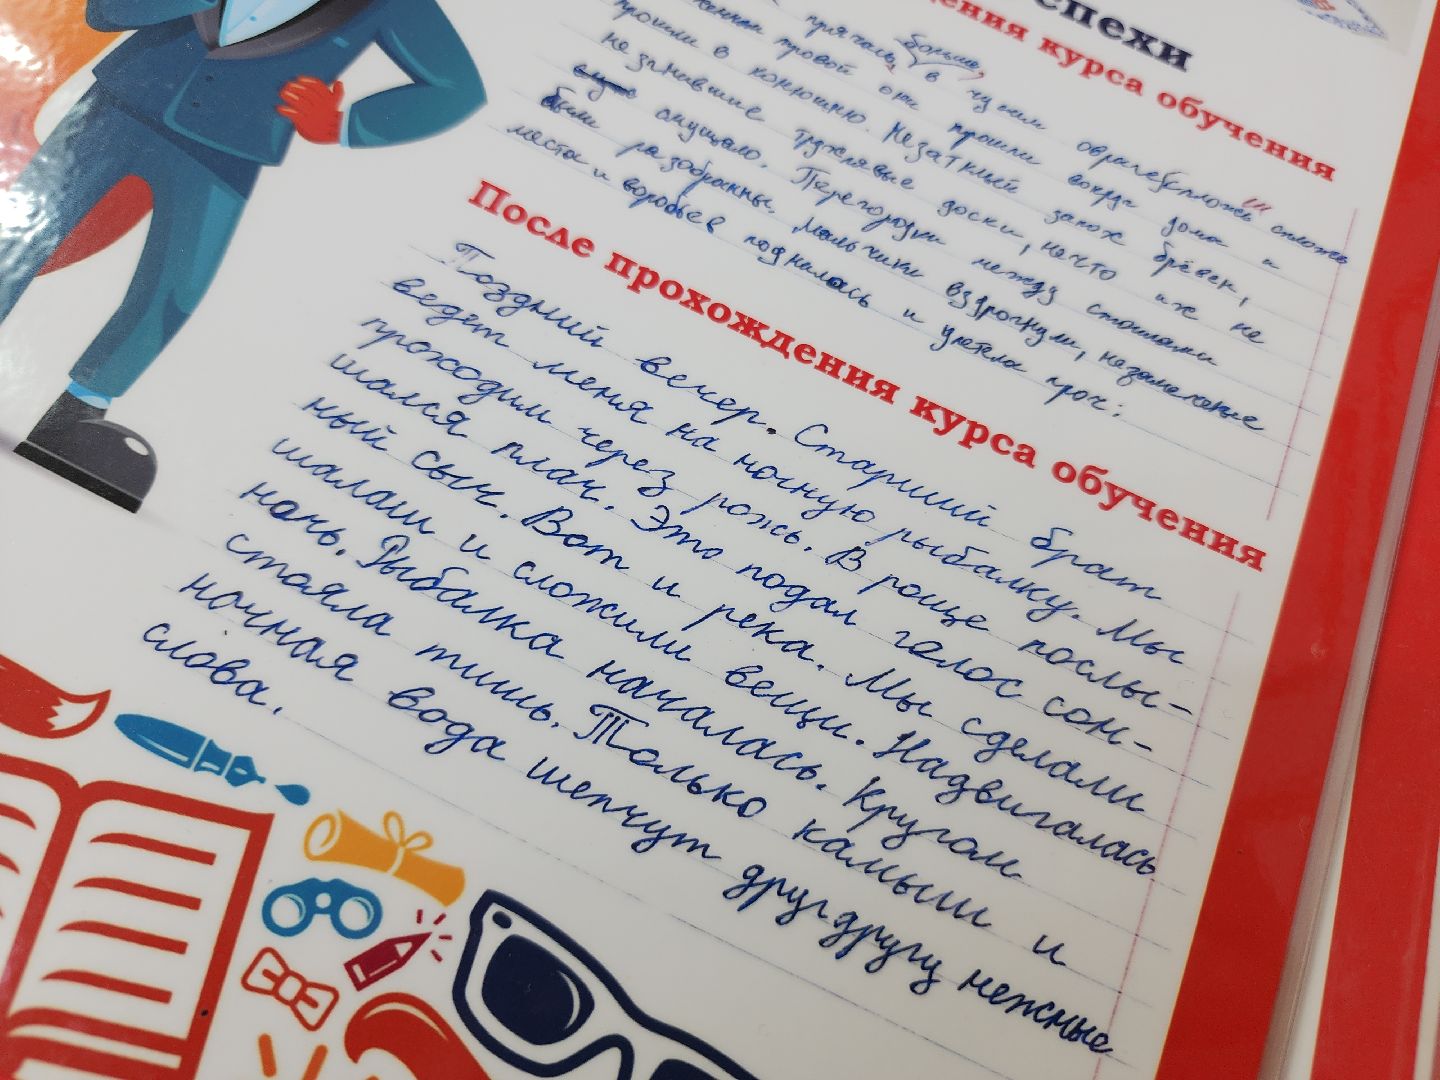 успехи
дения курса обучения
больше,
в чужом
прошли в конюшню. Незатхлый запах брёвен,
не сгнившие трухлявые доски, ничто их не
смущало. Перегородки между стойлами
были разобраны. Мальчики вздрогнули, незамеченные
места и воробьев поднялась и улетела прочь:
После прохождения курса обучения
Поздний вечер. Старший брат
ведет меня на ночную рыбалку. Мы
проходим через рожь. В роще послы-
шался плач. Это подал голос сон-
ный сыч. Вот и река. Мы сделали
шалаш и сложили вещи. Надвигалась
ночь. Рыбалка началась. Кругом
стояла тишь. Только камыш и
ночная вода шепчут друг другу нежные
слова.